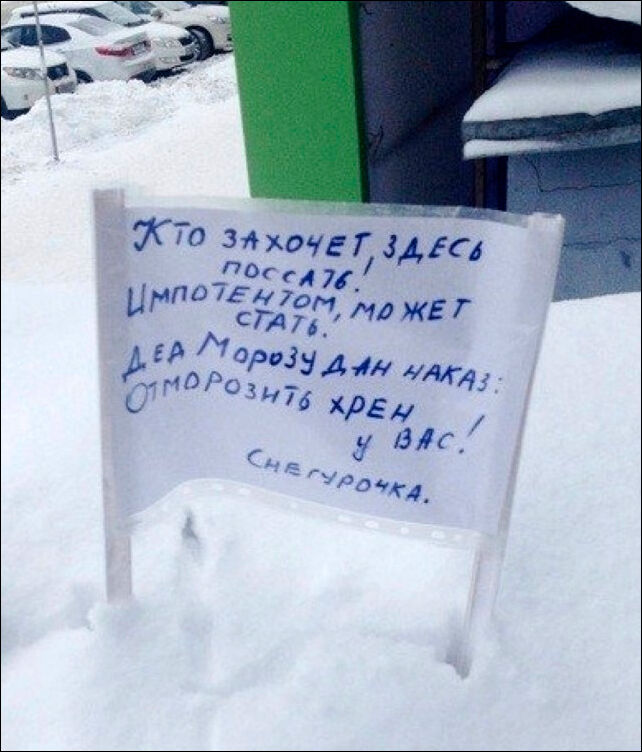 Кто захочет, здесь
поссать!
Импотентом, может
стать!
Дед Морозу дан наказ:
Отморозить хрен
у вас!
Снегурочка.